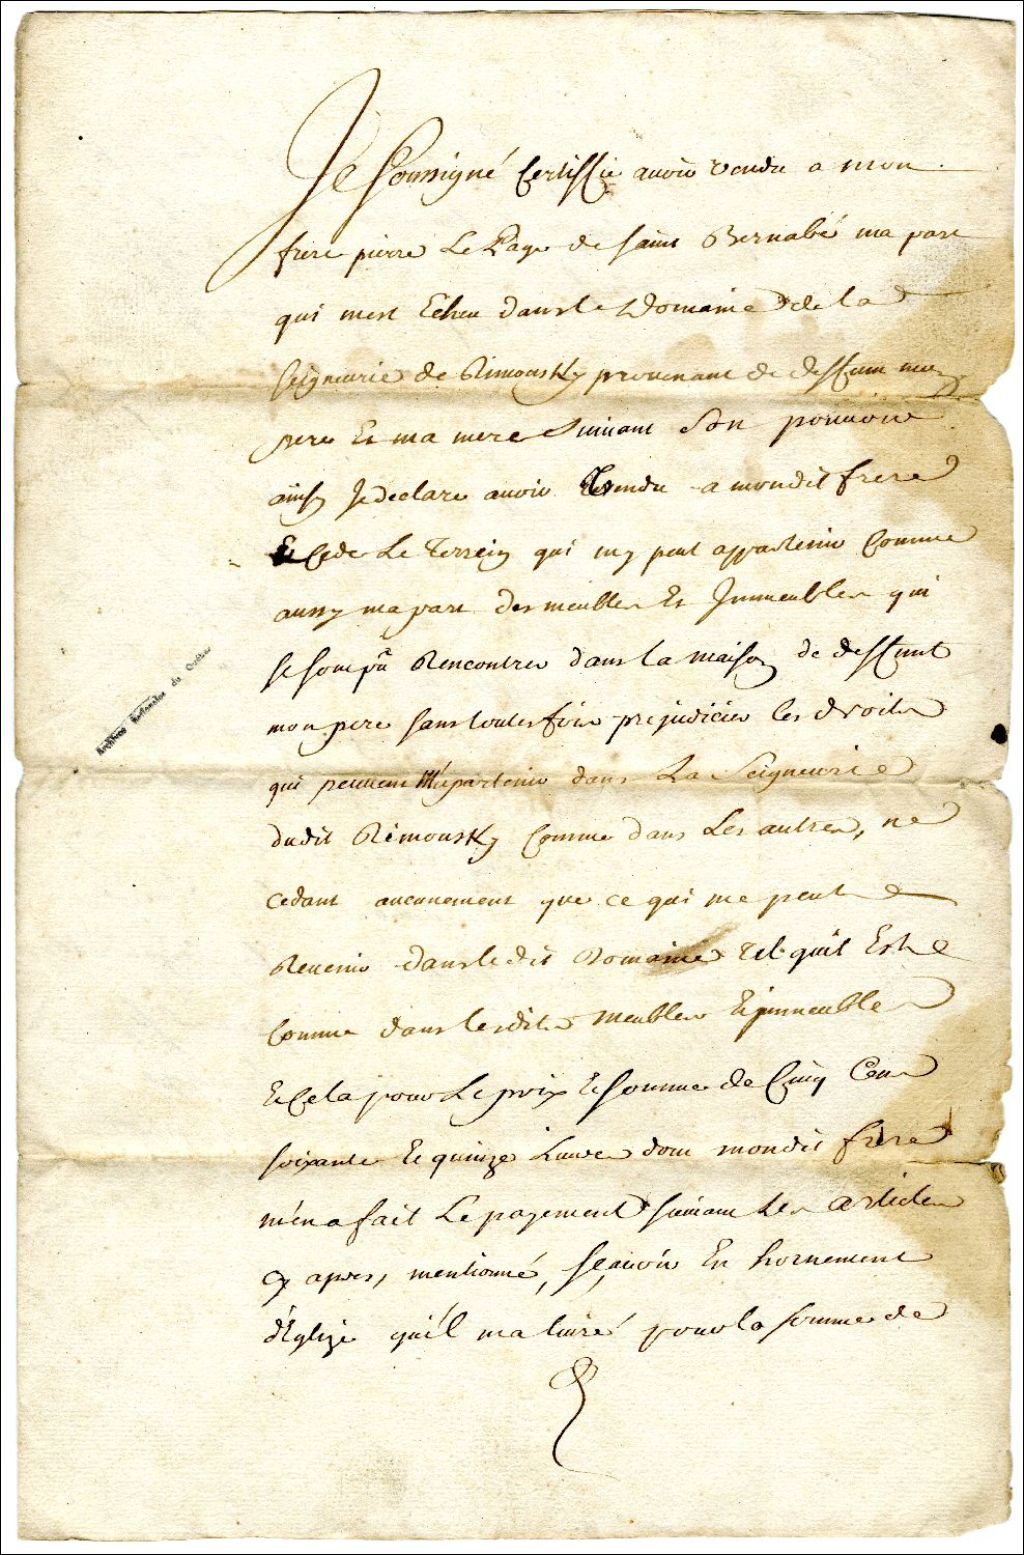 Je Soussigné Certiffie auoir vendu a mon
frere pierre Le Page de saint Bernabé ma part
qui mest Echeu dans le Domaine de la
seigneurie de Rimousky prouenant de deffunt mon
pere Et ma mere Suiuant Son pouuoir
ainsy Je declare auoir Vendu a mondit frere
Et Cede Le Terrein qui my peut appartenir Comme
aussy ma part des meubles Et Immeubles qui
se sont pû Rencontrer dans la maison de deffunt
mon pere sans toutes fois prejudicier les droits
qui peuuent M'apartenir dans La Seigneurie
dudit Rimousky Comme dans Les autres, ne
cedant aucunement que ce qui me peut
Reuenir dans le dit Domaine Tel quil Est
Comme dans lesdits Meubles Et immeubles
Et Cela pour Le prix Et somme de Cinq Cens
soixante Et quinze Liures dont mondit frere
m'en a fait Le payement suiuant Les articles
Cy apres, mentionné, sçauoir En hornement
d'Eglize qu'il ma liuré pour la somme de
Archives Nationales du Québec